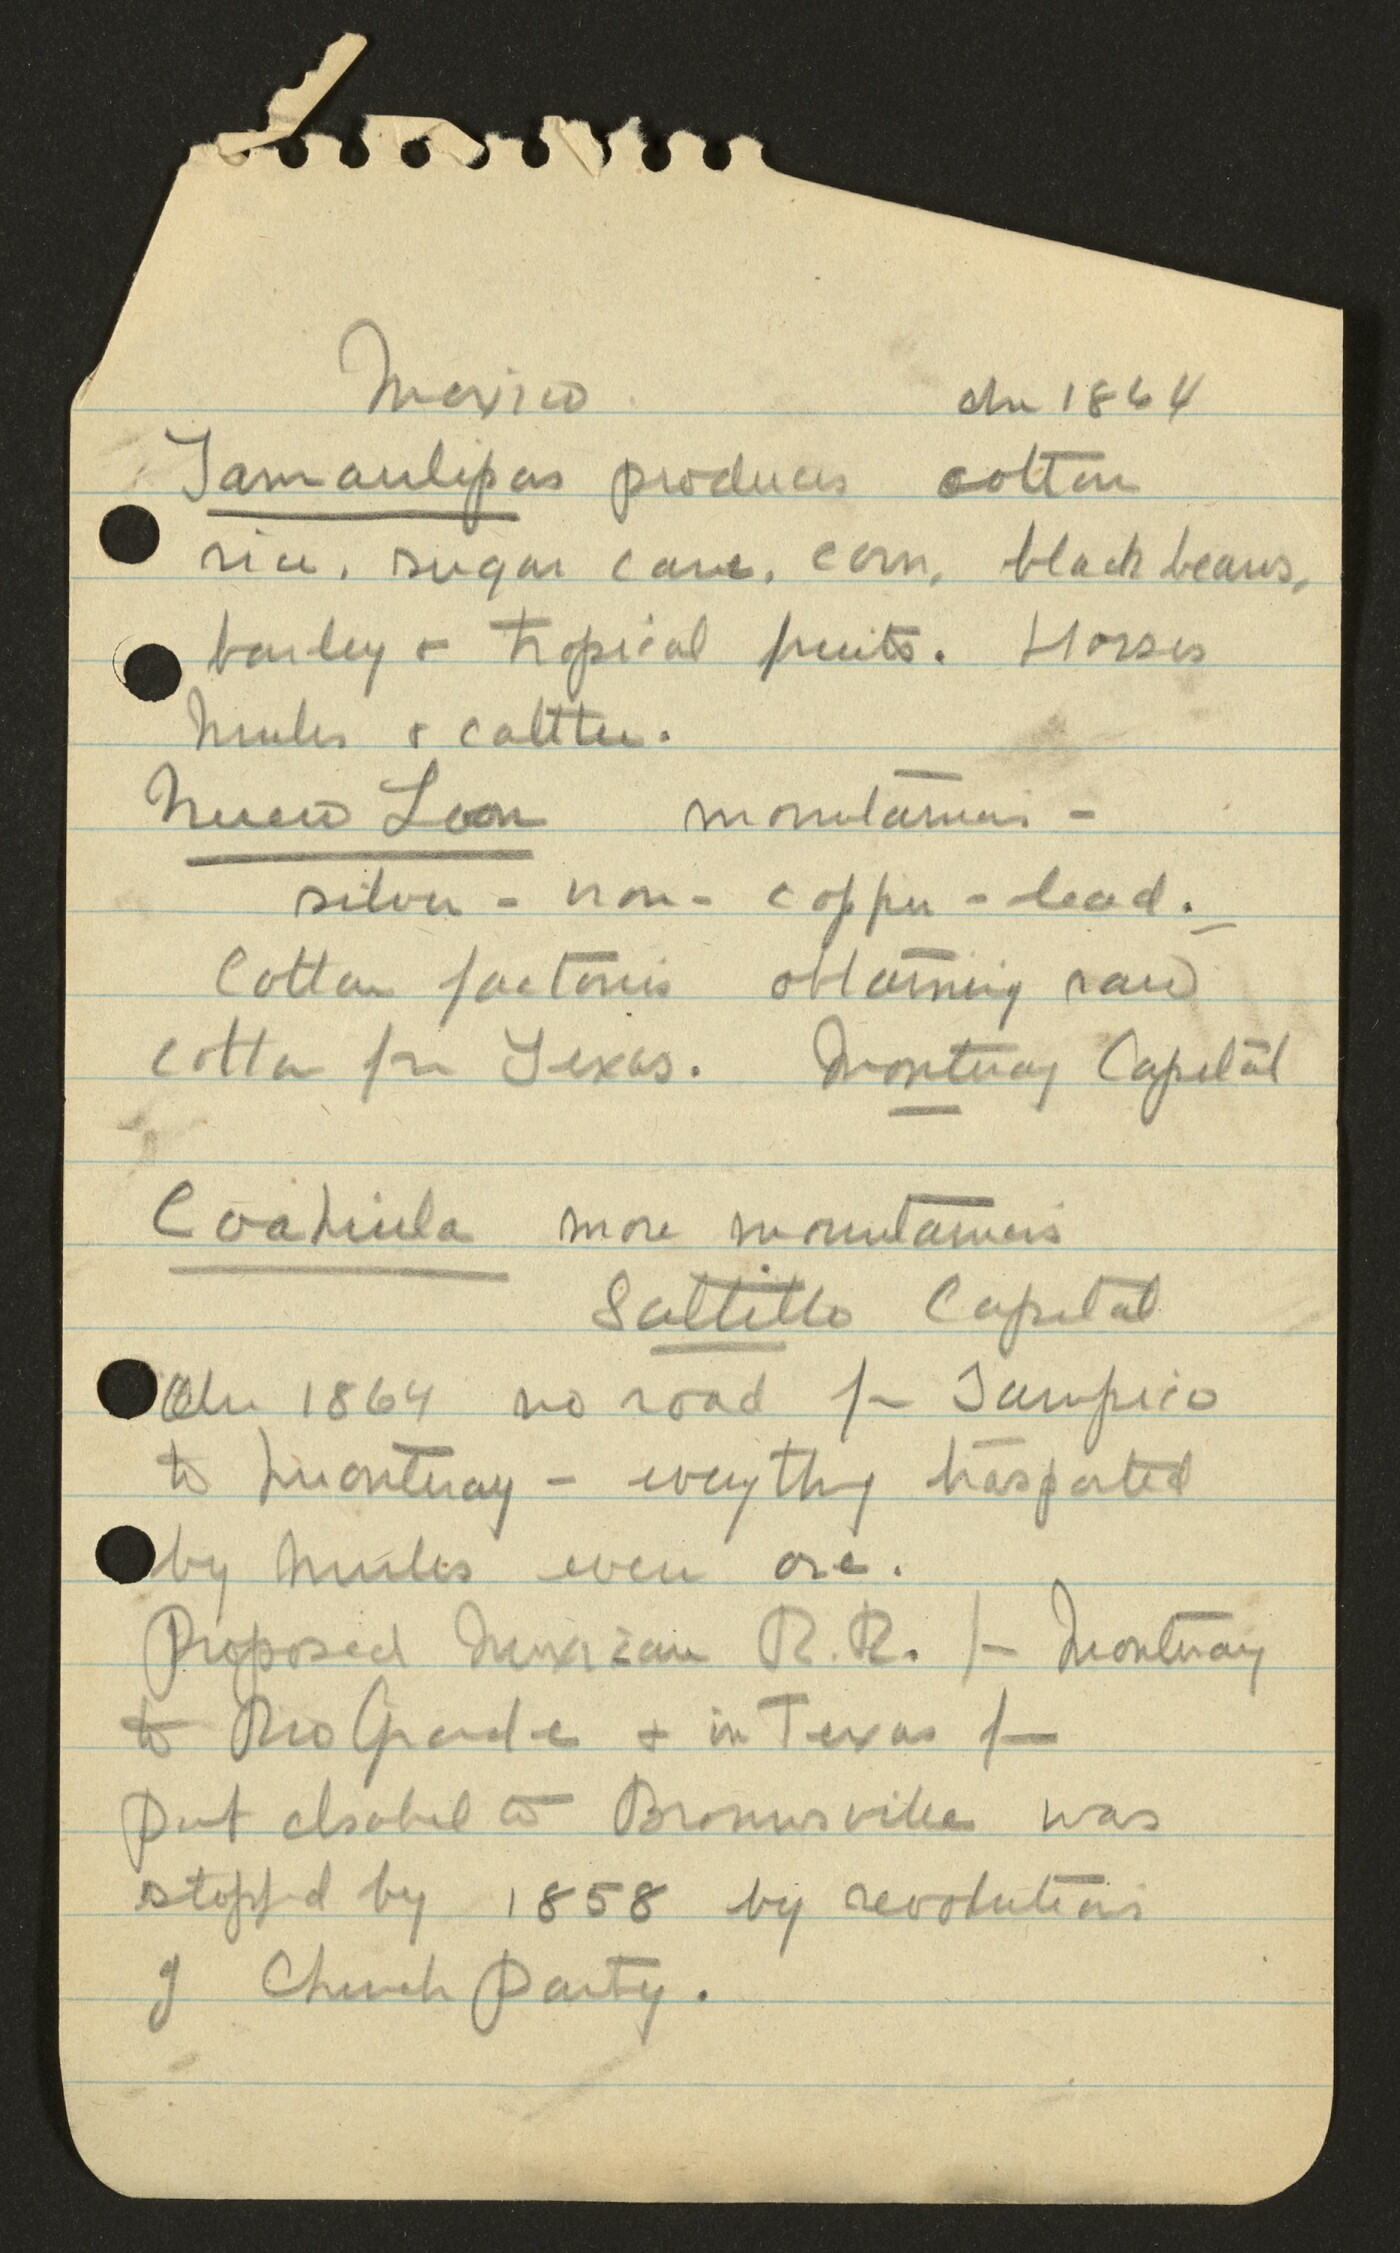 Mexico In 1864
Tamaulipas produces cotton
rice, sugar cane, corn, black beans,
barley & tropical fruits. Horses
Mules & cattle.
Nuevo Leon mountains -
silver - iron - copper - lead.
Cotton factories obtaining raw
cotton fm Texas. Monteray Capital
Coahuila more mountains
Saltillo Capital
In 1864 no road fm Tampico
to Monteray - everything trasported
by Mules even ore.
Proposed Mexican R.R. fm Monteray
to Rio Grande & in Texas fm
Port Isabel to Brownsville was
stopped by 1858 by revolutions
of Church Party.